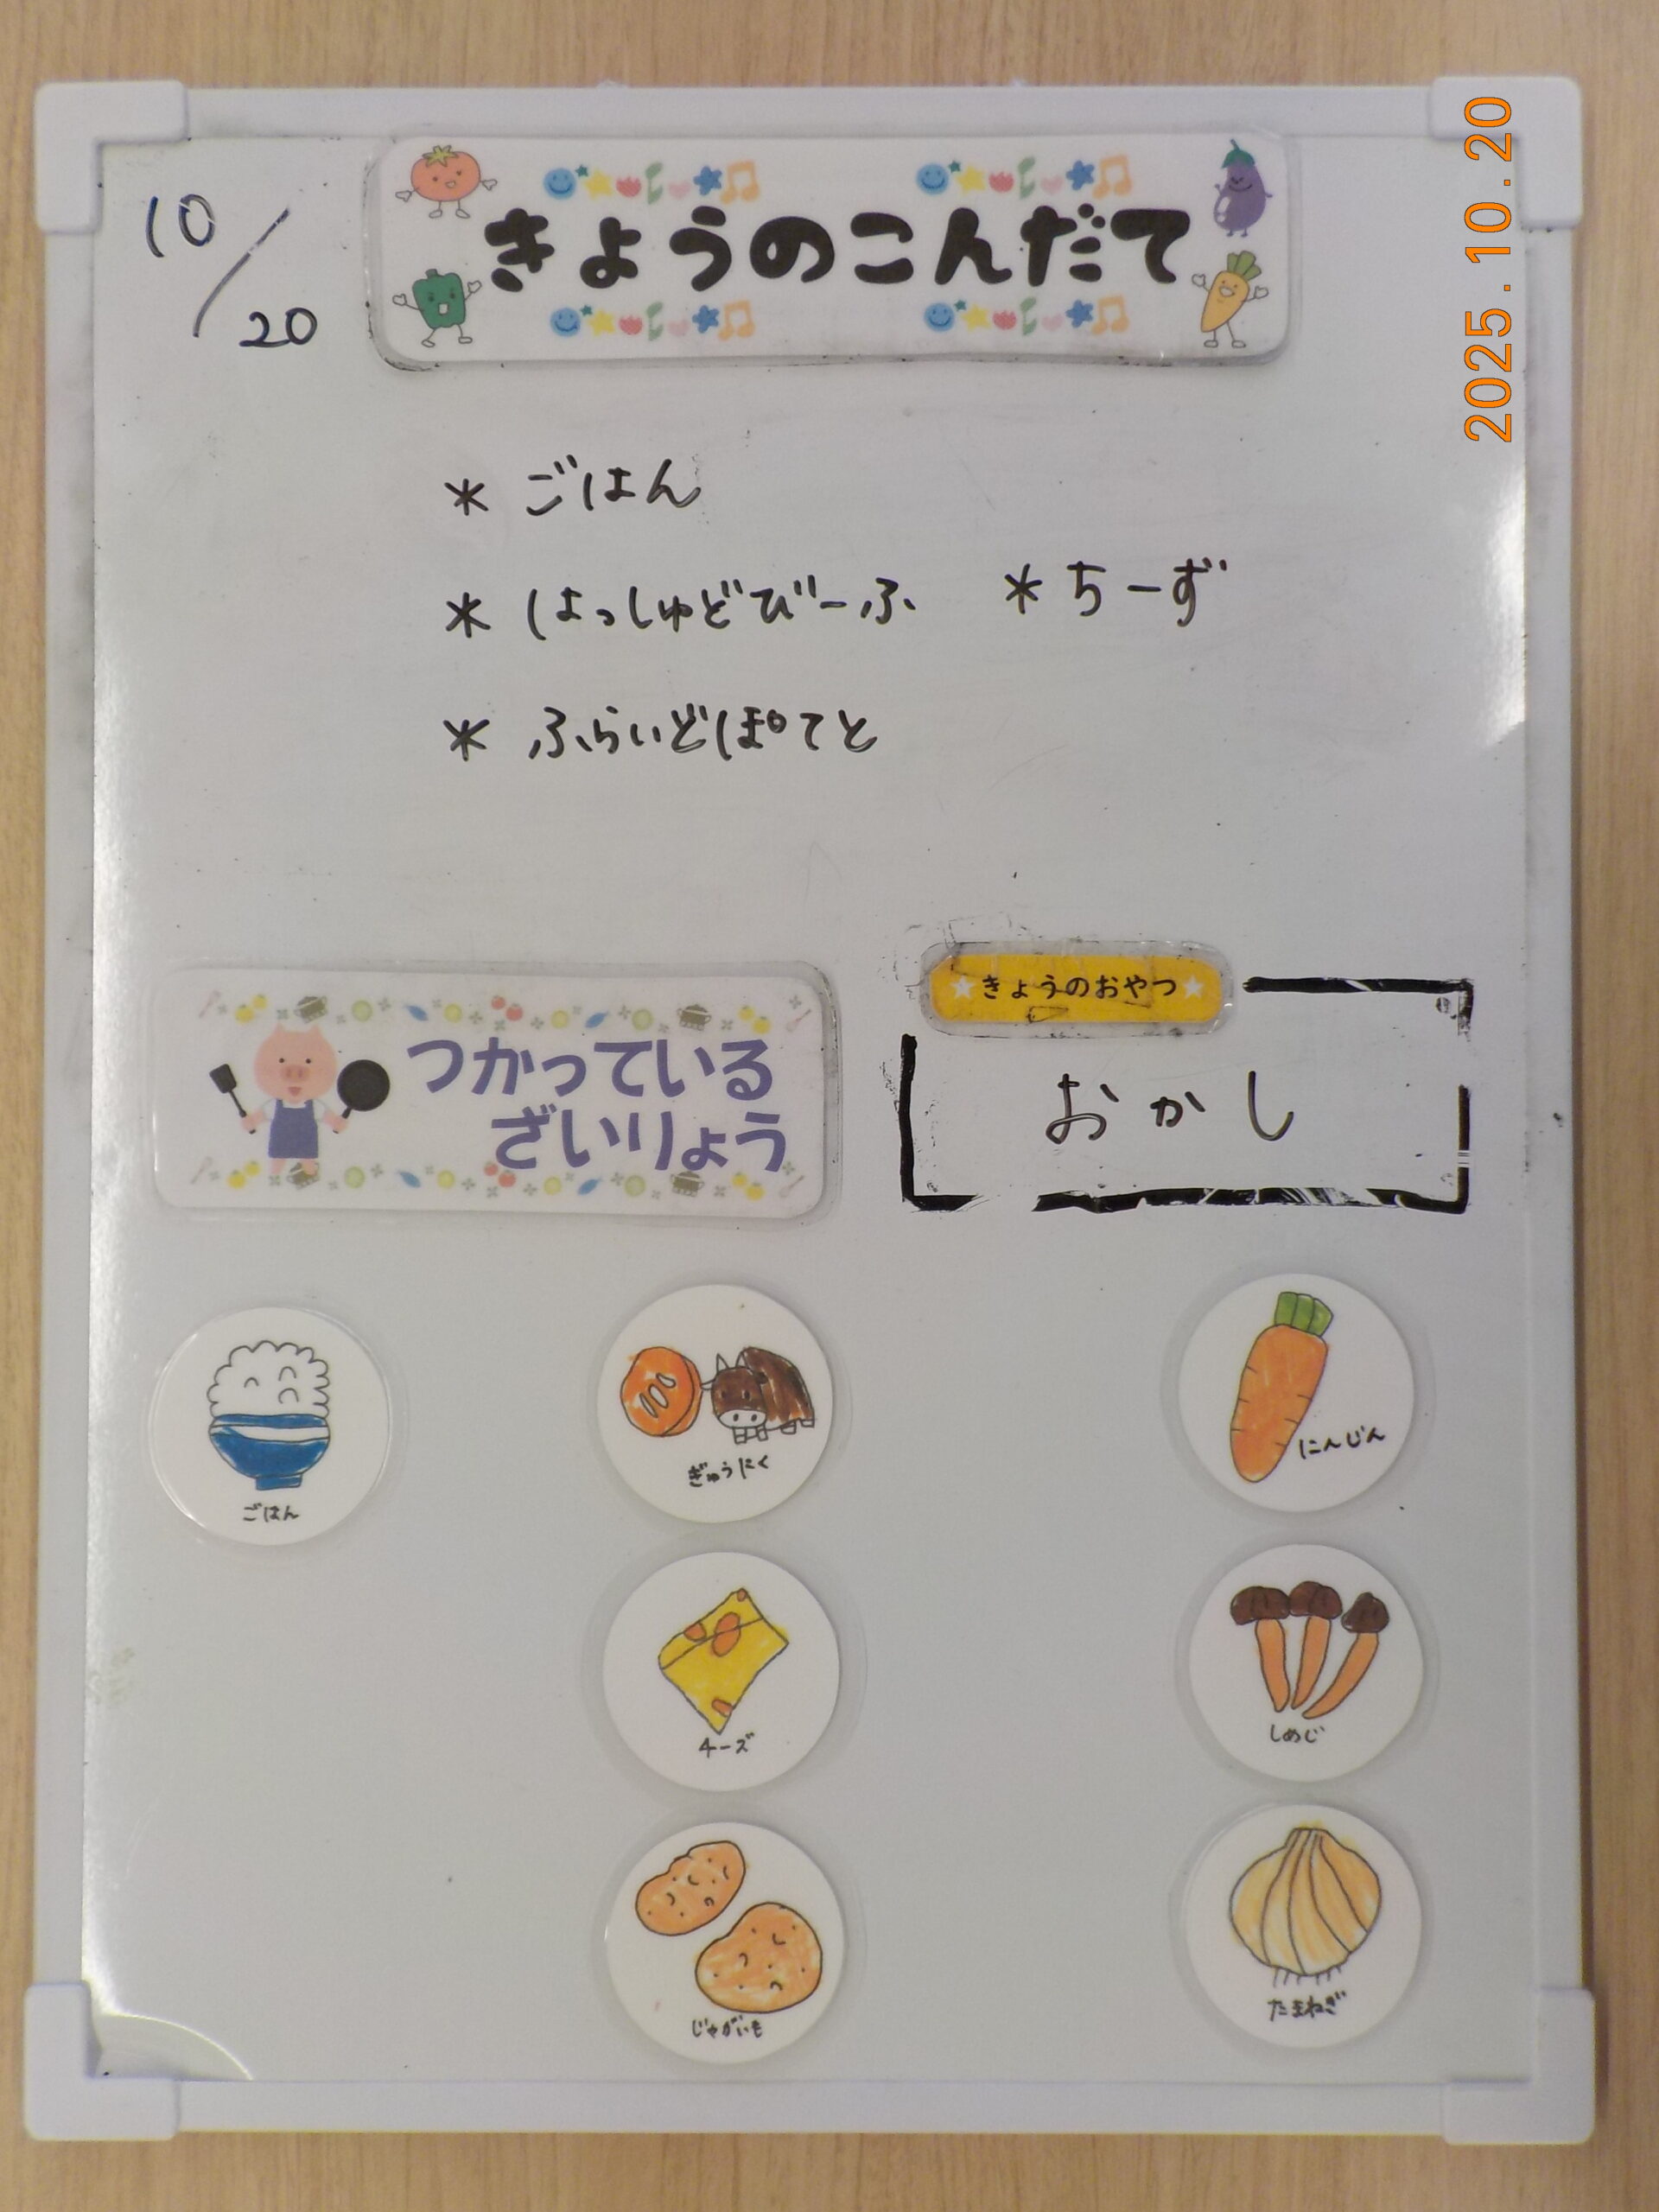 10/20
きょうのこんだて
2025.10.20
* ごはん
* はっしゅどびーふ * ちーず
* ふらいどぽてと
きょうのおやつ
おかし
つかっている
ざいりょう
ごはん
ぎゅうにく
にんじん
チーズ
しめじ
じゃがいも
たまねぎ